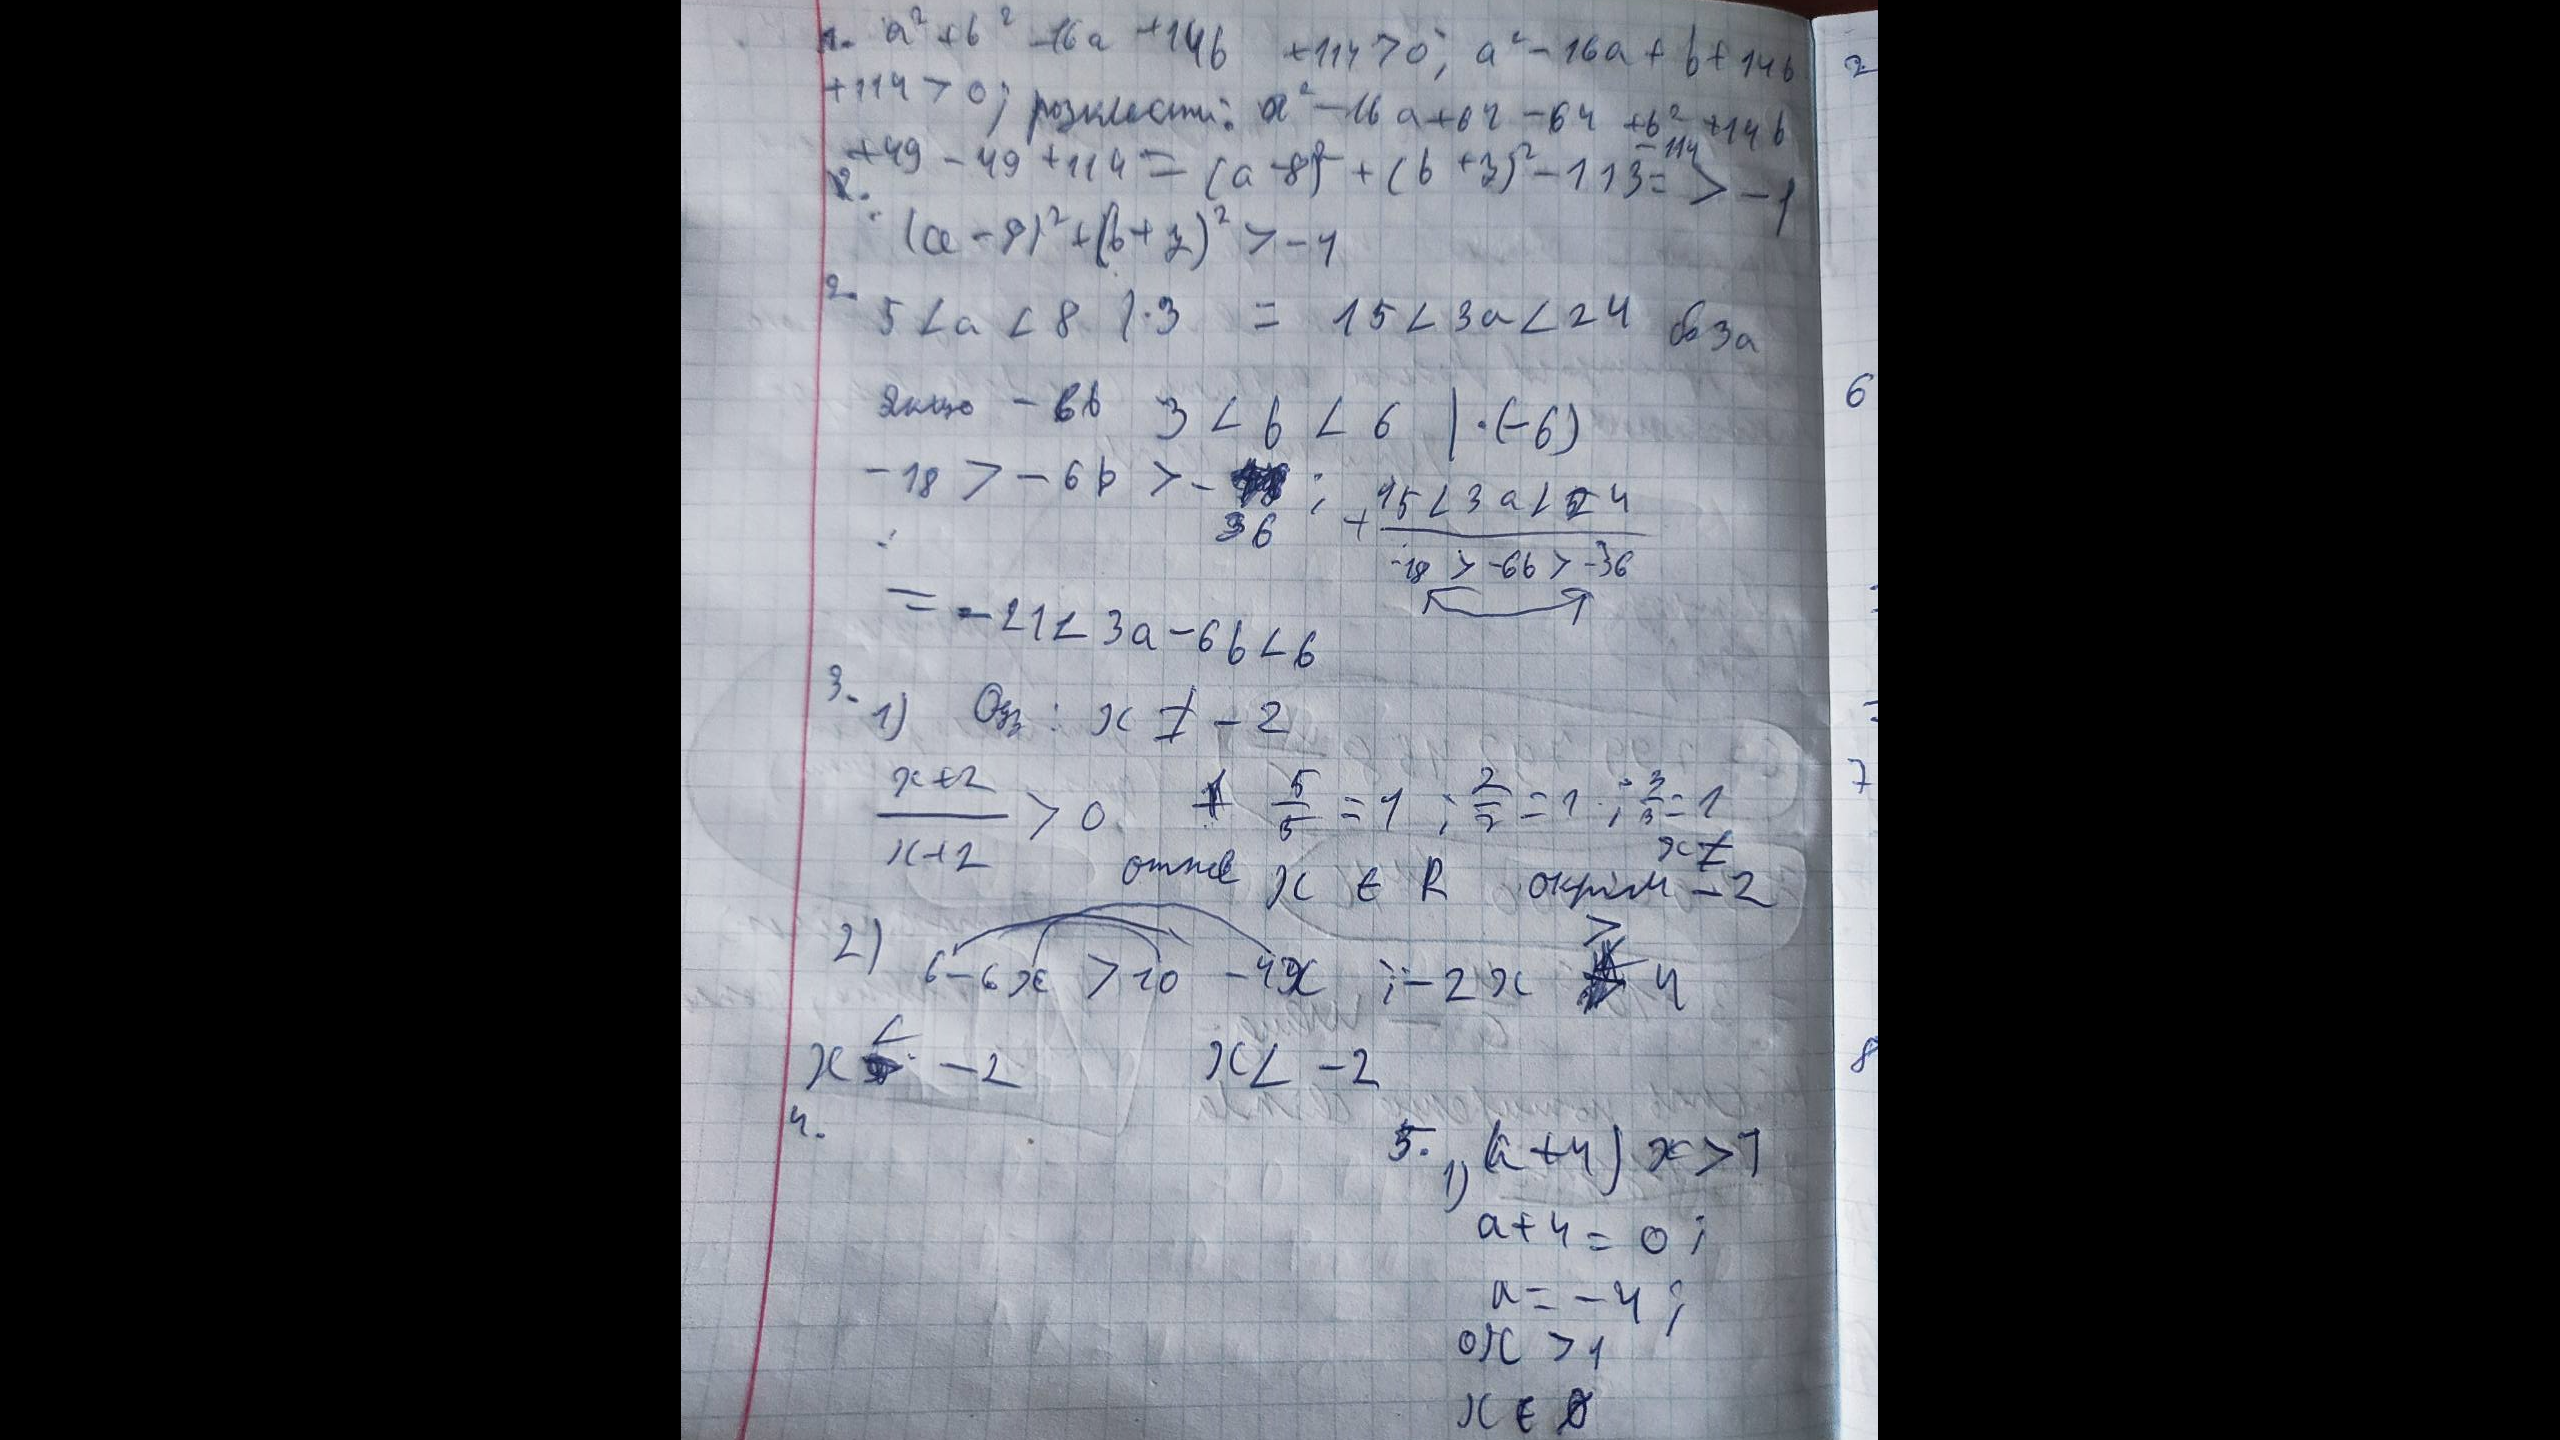 1. a² + b² - 16a + 14b + 114 > 0; a² - 16a + b + 14b
+ 114 > 0; розкласти: a² - 16a + 64 - 64 + b² + 14b
+ 49 - 49 + 114 = (a - 8)² + (b + 7)² - 113 = > -1
-114
2. (a - 8)² + (b + 7)² > -1
2. 5 < a < 8 | · 3 = 15 < 3a < 24 3a
якщо - 6b 3 < b < 6 | · (-6)
-18 > -6b > - 36 ; + 15 < 3a < 24
-18 > -6b > -36
= -21 < 3a - 6b < 6
3. 1) Одз: x ≠ -2
x+2/x+2 > 0 5/5 = 1 ; 2/2 = 1 ; 3/3 = 1
отже x ∈ R окрім x ≠ -2
2) 6 - 6x > 10 - 4x ; -2x > 4
x < -2 x < -2
4.
5. 1) (a + 4) x > 1
a + 4 = 0 ;
a = -4 ;
0x > 1
x ∈ ∅
2
6
7
8